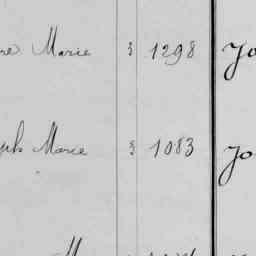 re Marie 3 1298 Jo
ph Marie 3 1083 Jo